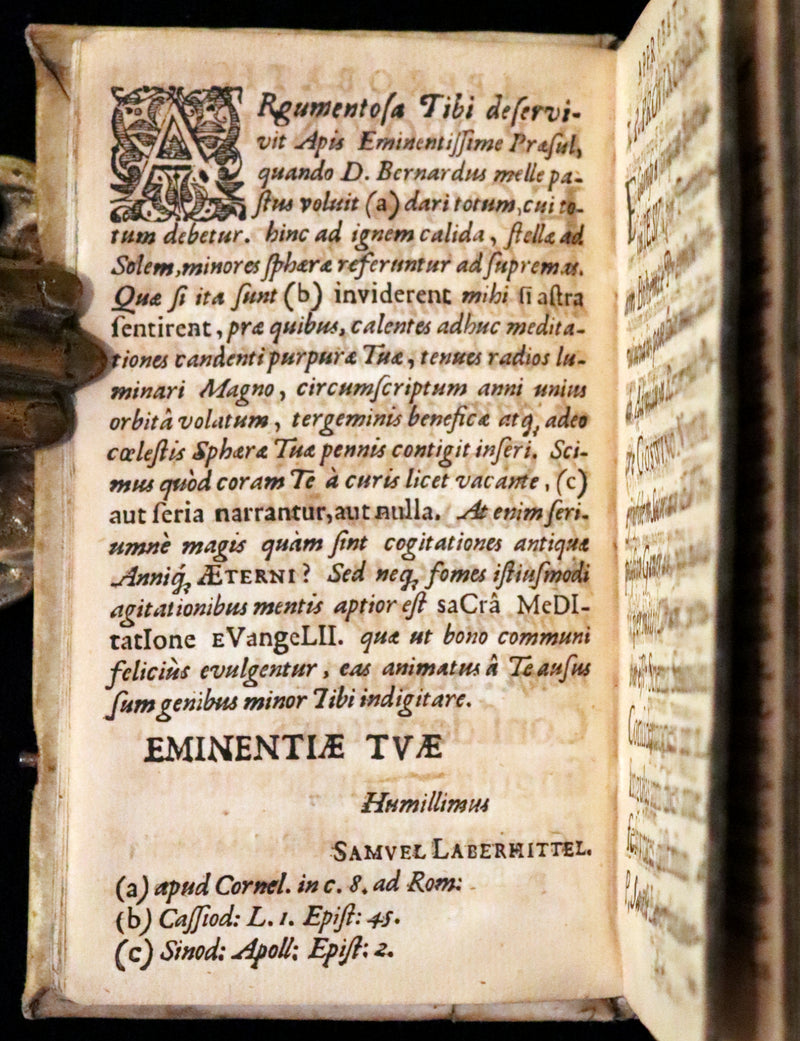 ARgumentoſa Tibi deſervi-
vit Apis Eminentiſſime Præſul,
quando D. Bernardus melle pa-
ſtus voluit (a) dari totum, cui to-
tum debetur. hinc ad ignem calida, ſtellæ ad
Solem, minores ſphæræ referuntur ad ſupremas.
Quæ ſi ita ſunt (b) inviderent mihi ſi aſtra
ſentirent, præ quibus, calentes adhuc medita-
tiones candenti purpuræ Tuæ, tenues radios lu-
minari Magno, circumſcriptum anni unius
orbitâ volatum, tergeminis beneficæ atq; adeo
cœleſtis Sphæræ Tuæ pennis contigit inſeri. Sci-
mus quòd coram Te à curis licet vacante, (c)
aut ſeria narrantur, aut nulla. At enim ſeri-
umnè magis quàm ſint cogitationes antiquæ
Anniq́; ÆTERNI? Sed neq; fomes iſtiuſmodi
agitationibus mentis aptior eſt saCrâ MeDI-
tatIone EVangeLII. quæ ut bono communi
feliciùs evulgentur, eas animatus â Te auſus
ſum genibus minor Tibi indigitare.
EMINENTIÆ TVÆ
Humillimus
SAMVEL LABERHITTEL.
(a) apud Cornel. in c. 8. ad Rom:
(b) Caſſiod: L. 1. Epiſt: 45.
(c) Sinod: Apoll: Epiſt: 2.